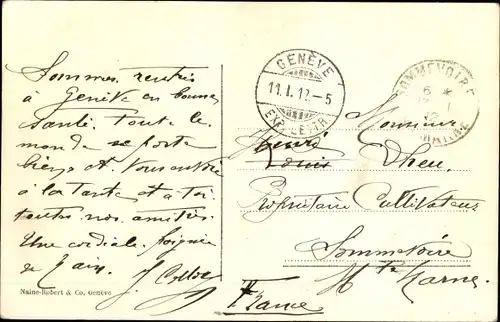 Sommes rentrés
à Genève en bonne
santé. Toute le
monde se porte
bien et Vous envoie
à la tante et à toi
toutes nos amitiés.
Une cordiale poignée
de main.
Naine-Robert & Co, Genève
GENÈVE
11.I.12-5
EXP. LETTR.
SOMMEVOIRE
6 *
12
MARNE
Monsieur
Henri
Louis
Dheu
Propriétaire Cultivateur
Sommevoire
Hte Marne
France